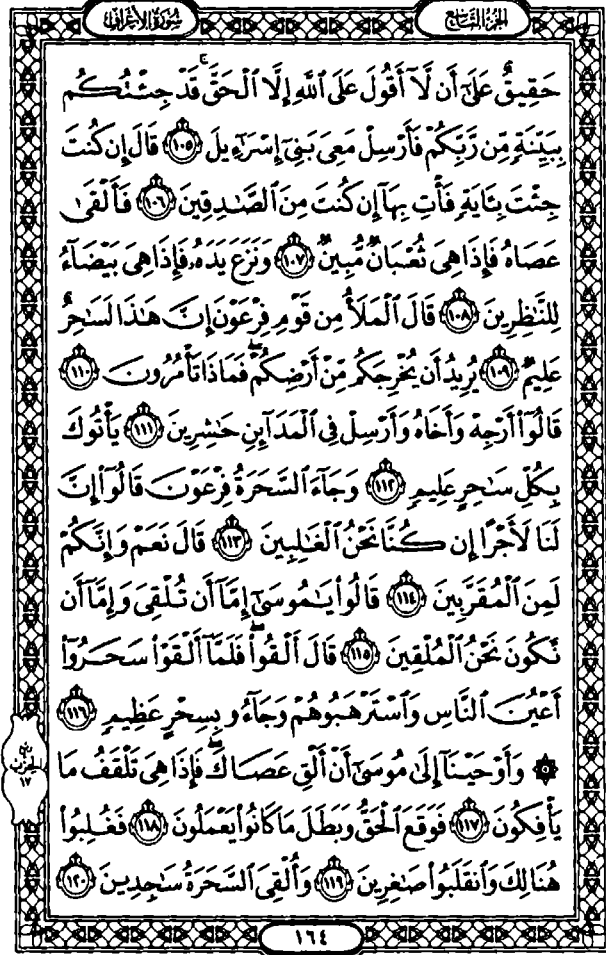 الجزء التاسع
سورة الأعراف
حَقِيقٌ عَلَىٰٓ أَن لَّآ أَقُولَ عَلَى ٱللَّهِ إِلَّا ٱلْحَقَّ ۚ قَدْ جِئْتُكُم
بِبَيِّنَةٍ مِّن رَّبِّكُمْ فَأَرْسِلْ مَعِىَ بَنِىٓ إِسْرَٰٓءِيلَ ١٠٥ قَالَ إِن كُنتَ
جِئْتَ بِـَٔايَةٍ فَأْتِ بِهَآ إِن كُنتَ مِنَ ٱلصَّٰدِقِينَ ١٠٦ فَأَلْقَىٰ
عَصَاهُ فَإِذَا هِىَ ثُعْبَانٌ مُّبِينٌ ١٠٧ وَنَزَعَ يَدَهُۥ فَإِذَا هِىَ بَيْضَآءُ
لِلنَّٰظِرِينَ ١٠٨ قَالَ ٱلْمَلَأُ مِن قَوْمِ فِرْعَوْنَ إِنَّ هَٰذَا لَسَٰحِرٌ
عَلِيمٌ ١٠٩ يُرِيدُ أَن يُخْرِجَكُم مِّنْ أَرْضِكُمْ ۖ فَمَاذَا تَأْمُرُونَ ١١٠
قَالُوٓا۟ أَرْجِهْ وَأَخَاهُ وَأَرْسِلْ فِى ٱلْمَدَآئِنِ حَٰشِرِينَ ١١١ يَأْتُوكَ
بِكُلِّ سَٰحِرٍ عَلِيمٍ ١١٢ وَجَآءَ ٱلسَّحَرَةُ فِرْعَوْنَ قَالُوٓا۟ إِنَّ
لَنَا لَأَجْرًا إِن كُنَّا نَحْنُ ٱلْغَٰلِبِينَ ١١٣ قَالَ نَعَمْ وَإِنَّكُمْ
لَمِنَ ٱلْمُقَرَّبِينَ ١١٤ قَالُوا۟ يَٰمُوسَىٰٓ إِمَّآ أَن تُلْقِىَ وَإِمَّآ أَن
نَّكُونَ نَحْنُ ٱلْمُلْقِينَ ١١٥ قَالَ أَلْقُوا۟ ۖ فَلَمَّآ أَلْقَوْا۟ سَحَرُوٓا۟
أَعْيُنَ ٱلنَّاسِ وَٱسْتَرْهَبُوهُمْ وَجَآءُو بِسِحْرٍ عَظِيمٍ ١١٦
۞ وَأَوْحَيْنَآ إِلَىٰ مُوسَىٰٓ أَنْ أَلْقِ عَصَاكَ ۖ فَإِذَا هِىَ تَلْقَفُ مَا
يَأْفِكُونَ ١١٧ فَوَقَعَ ٱلْحَقُّ وَبَطَلَ مَا كَانُوا۟ يَعْمَلُونَ ١١٨ فَغُلِبُوا۟
هُنَالِكَ وَٱنقَلَبُوا۟ صَٰغِرِينَ ١١٩ وَأُلْقِىَ ٱلسَّحَرَةُ سَٰجِدِينَ ١٢٠
الحزب
١٧
١٦٤